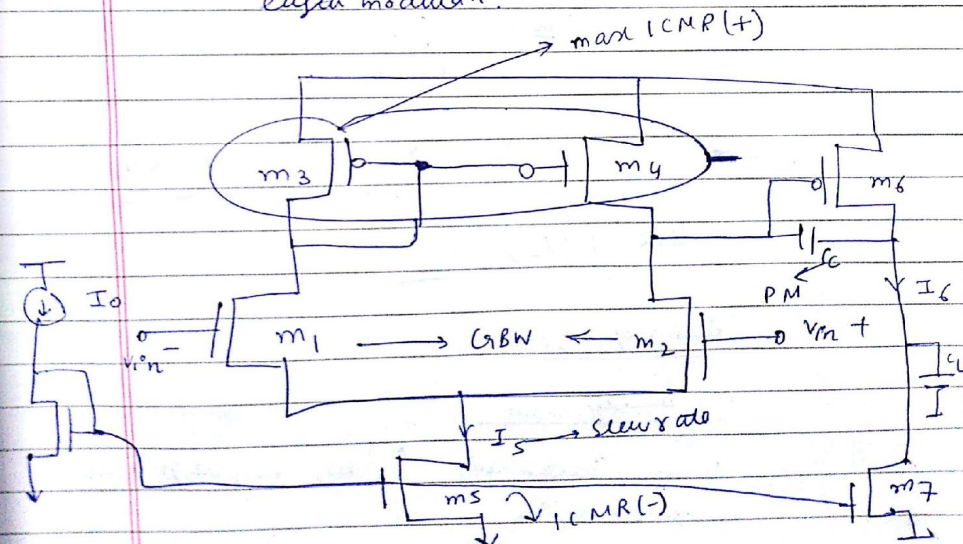 max ICMR(+)
m3
m4
m6
Cc
PM
I6
I0
Vin -
m1
GBW
m2
Vin +
CL
I5
slew rate
m5
ICMR(-)
m7